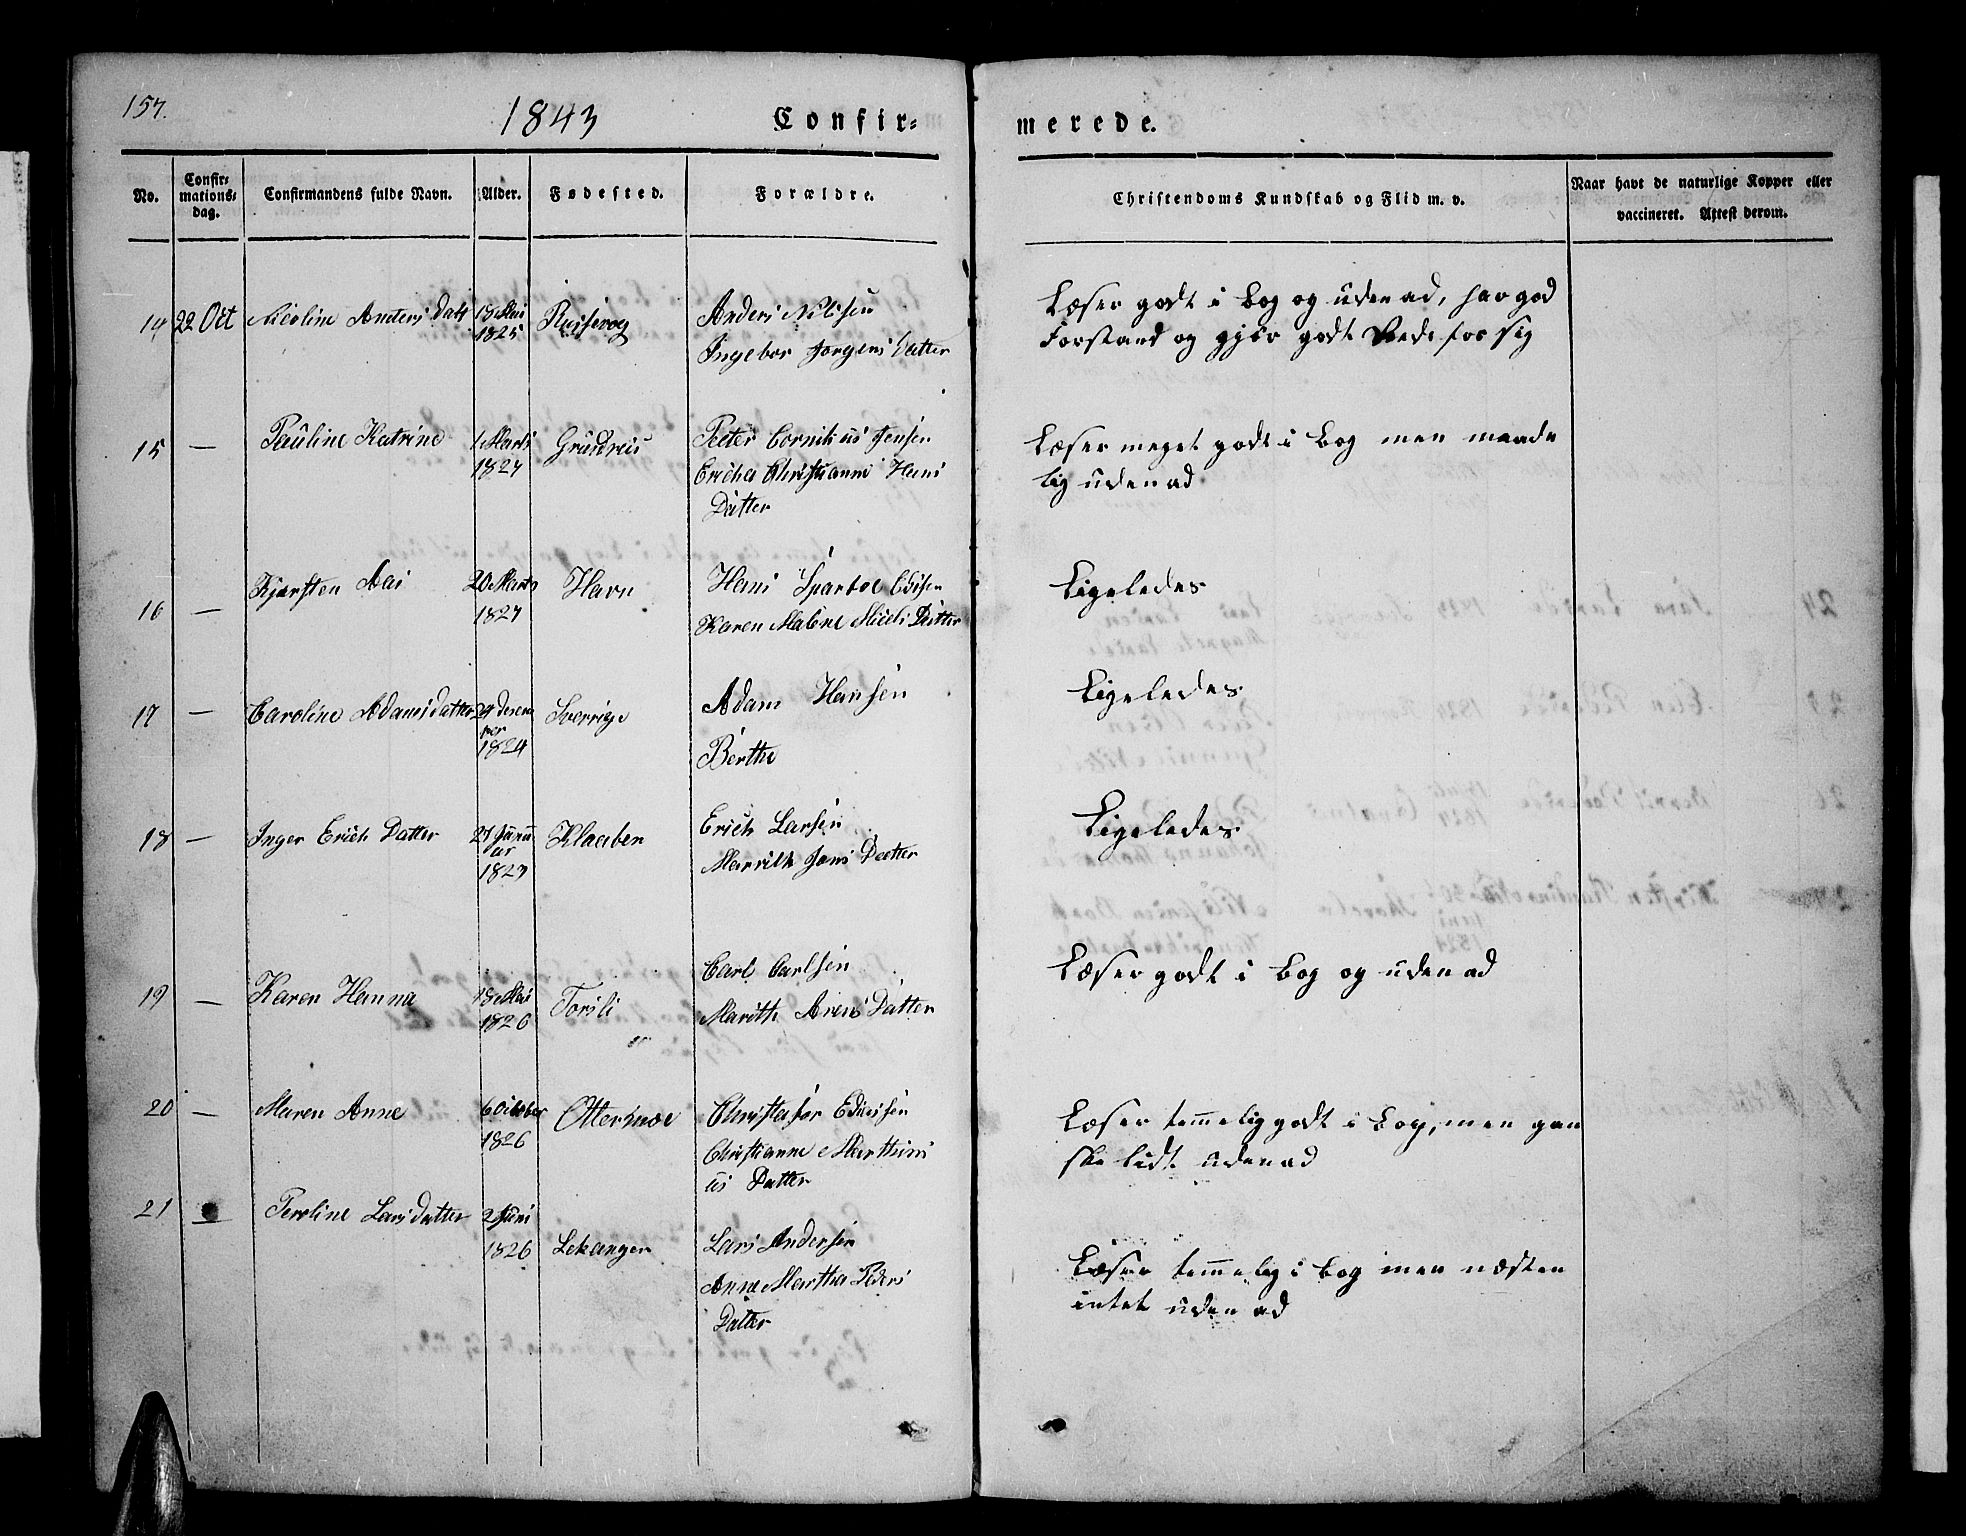 157.
1843
Confir-
merede.
No.
Confir-
mations-
dag.
Confirmandens fulde Navn.
Alder.
Fødested.
Forældre.
Christendoms Kundskab og Flid m. v.
Naar havt de naturlige Kopper eller
vaccineret. Attest derom.
14 22 Oct Nicoline Anders Datt 18 Mai 1825
Anders Nilsen
Ingebor Jørgens Datter
Læser godt i Bog og udenad, har god
Forstand og gjør godt Rede for sig
15 — Pauline Katrine 1 Marts 1827 Grundreis
Peter Cornelius Jensen
Ericha Christianne Hans
Datter
Læser meget godt i Bog men maade
lig udenad
16 — Kjersten Aas 20 Marts 1827 Havn
Hans Sparboe
Karen Malene Niels Datter
Ligeledes
17 — Caroline Adamsdatter 24 decem
ber
1824 Sverrige
Adam Hansen
Berthe
Ligeledes
18 — Inger Erich Datter 27 Janu
ar
1823 Klaaben
Erich Larsen
Marrith Jons Datter
Ligeledes
19 — Karen Hanna 18 Mai 1826 Torsli
Carl Carlsen
Marith Arens Datter
Læser godt i Bog og udenad
20 — Maren Anne 6 October 1826 Ottersnæe
Christafør Edisen
Christianne Marthini
us Datter
Læser temmelig godt i Bog, men gan
ske lidt udenad
21 — Peroline Lars Datter 2 Juni 1826 Lekanger
Lars Andersen
Anne Martha Peders
Datter
Læser temmelig i Bog men næsten
intet udenad